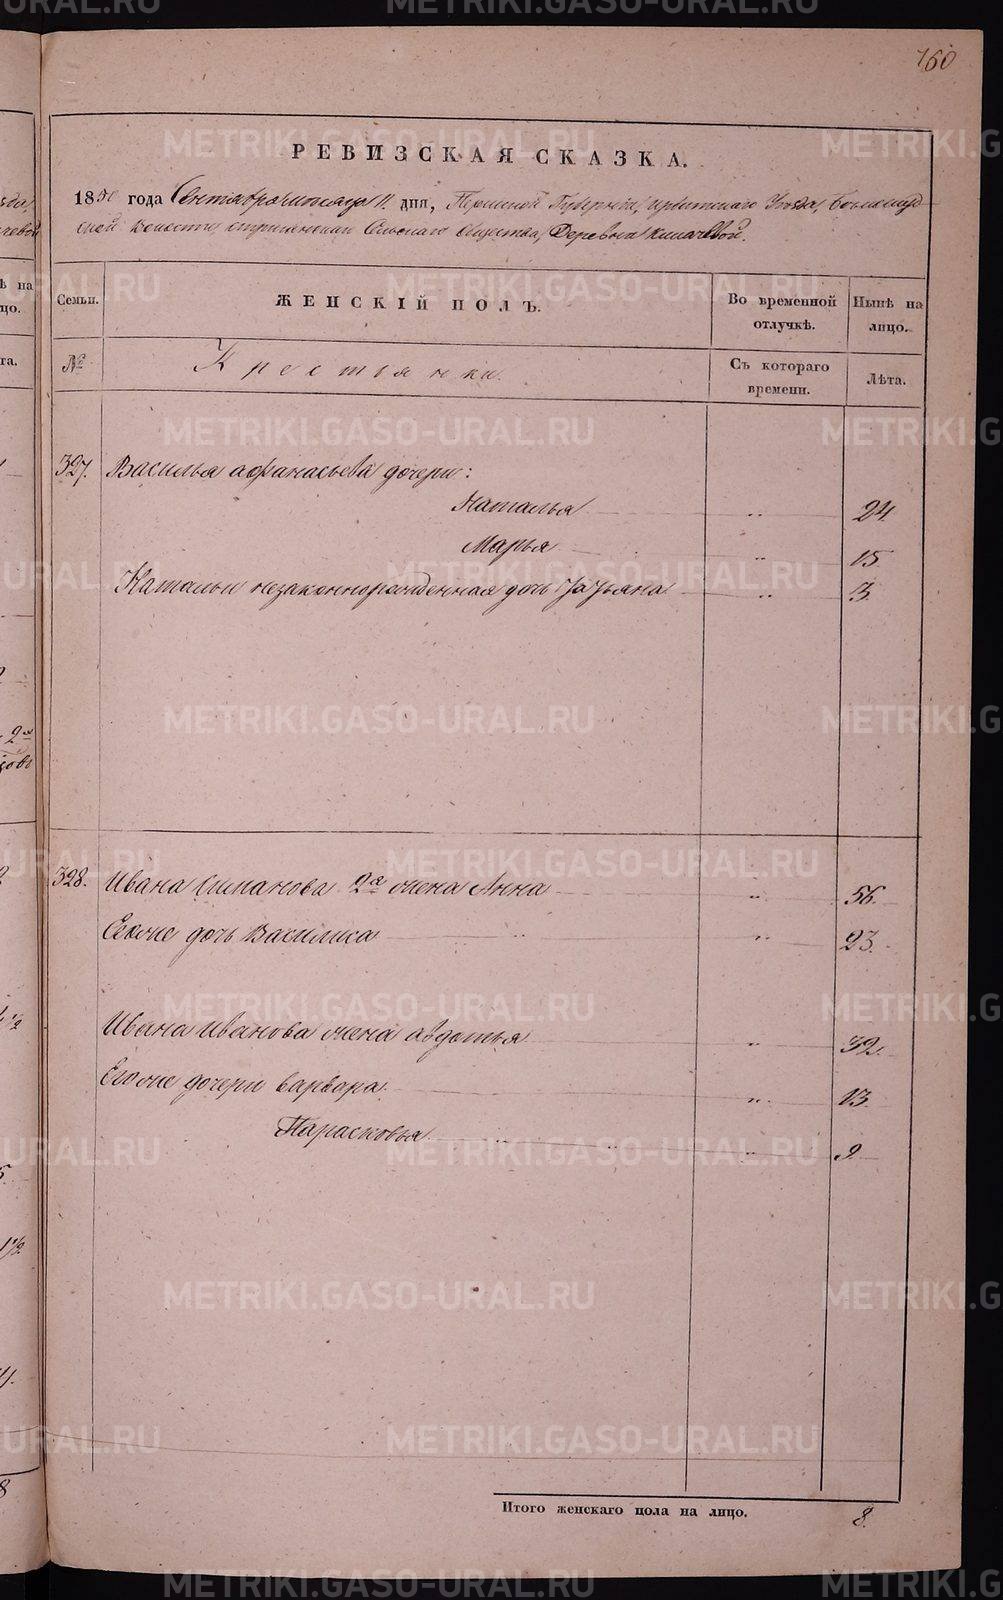 160
РЕВИЗСКАЯ СКАЗКА.
1850 года Сентября месяца 11. дня, Пермской Губернии, Ирбитскаго Уезда,
ской волости, Сельскаго Общества, Деревни
Семьи.
ЖЕНСКІЙ ПОЛЪ.
Во временной отлучкѣ.
Нынѣ на лицо.
№
Крестьянки.
Съ котораго времени.
Лѣта.
327. Василья Афанасьева дочери:
Наталья " 24.
Марья " 15.
Натальи незаконнорожденная дочь Татьяна " 3.
328. Ивана Симанова 2я жена Анна " 56.
Ево же дочь Василиса " 23.
Ивана Иванова жена Авдотья " 32.
Ево же дочери Варвара " 13.
Парасковья " 9.
Итого женскаго пола на лицо. 8.
METRIKI.GASO-URAL.RU